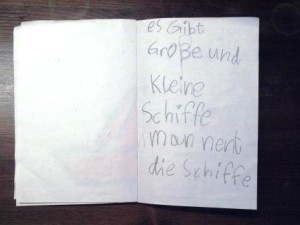 es Gibt
Große und
Kleine
Schiffe
man nent
die Schiffe